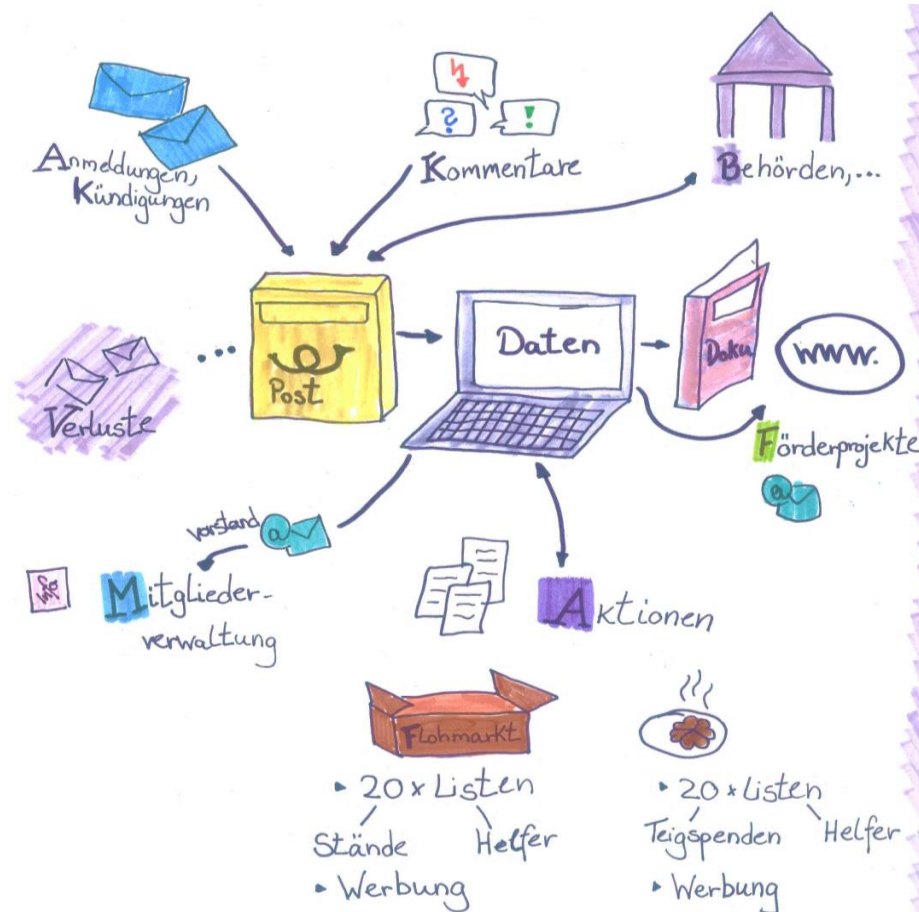 Anmeldungen,
Kündigungen
?
!
Kommentare
Behörden,...
...
Verluste
Post
Daten
Doku
www.
Förderprojekte
@
vorstand @
Info
Mitglieder-
verwaltung
Aktionen
Flohmarkt
• 20 x Listen
Stände Helfer
• Werbung
• 20 x Listen
Teigspenden Helfer
• Werbung